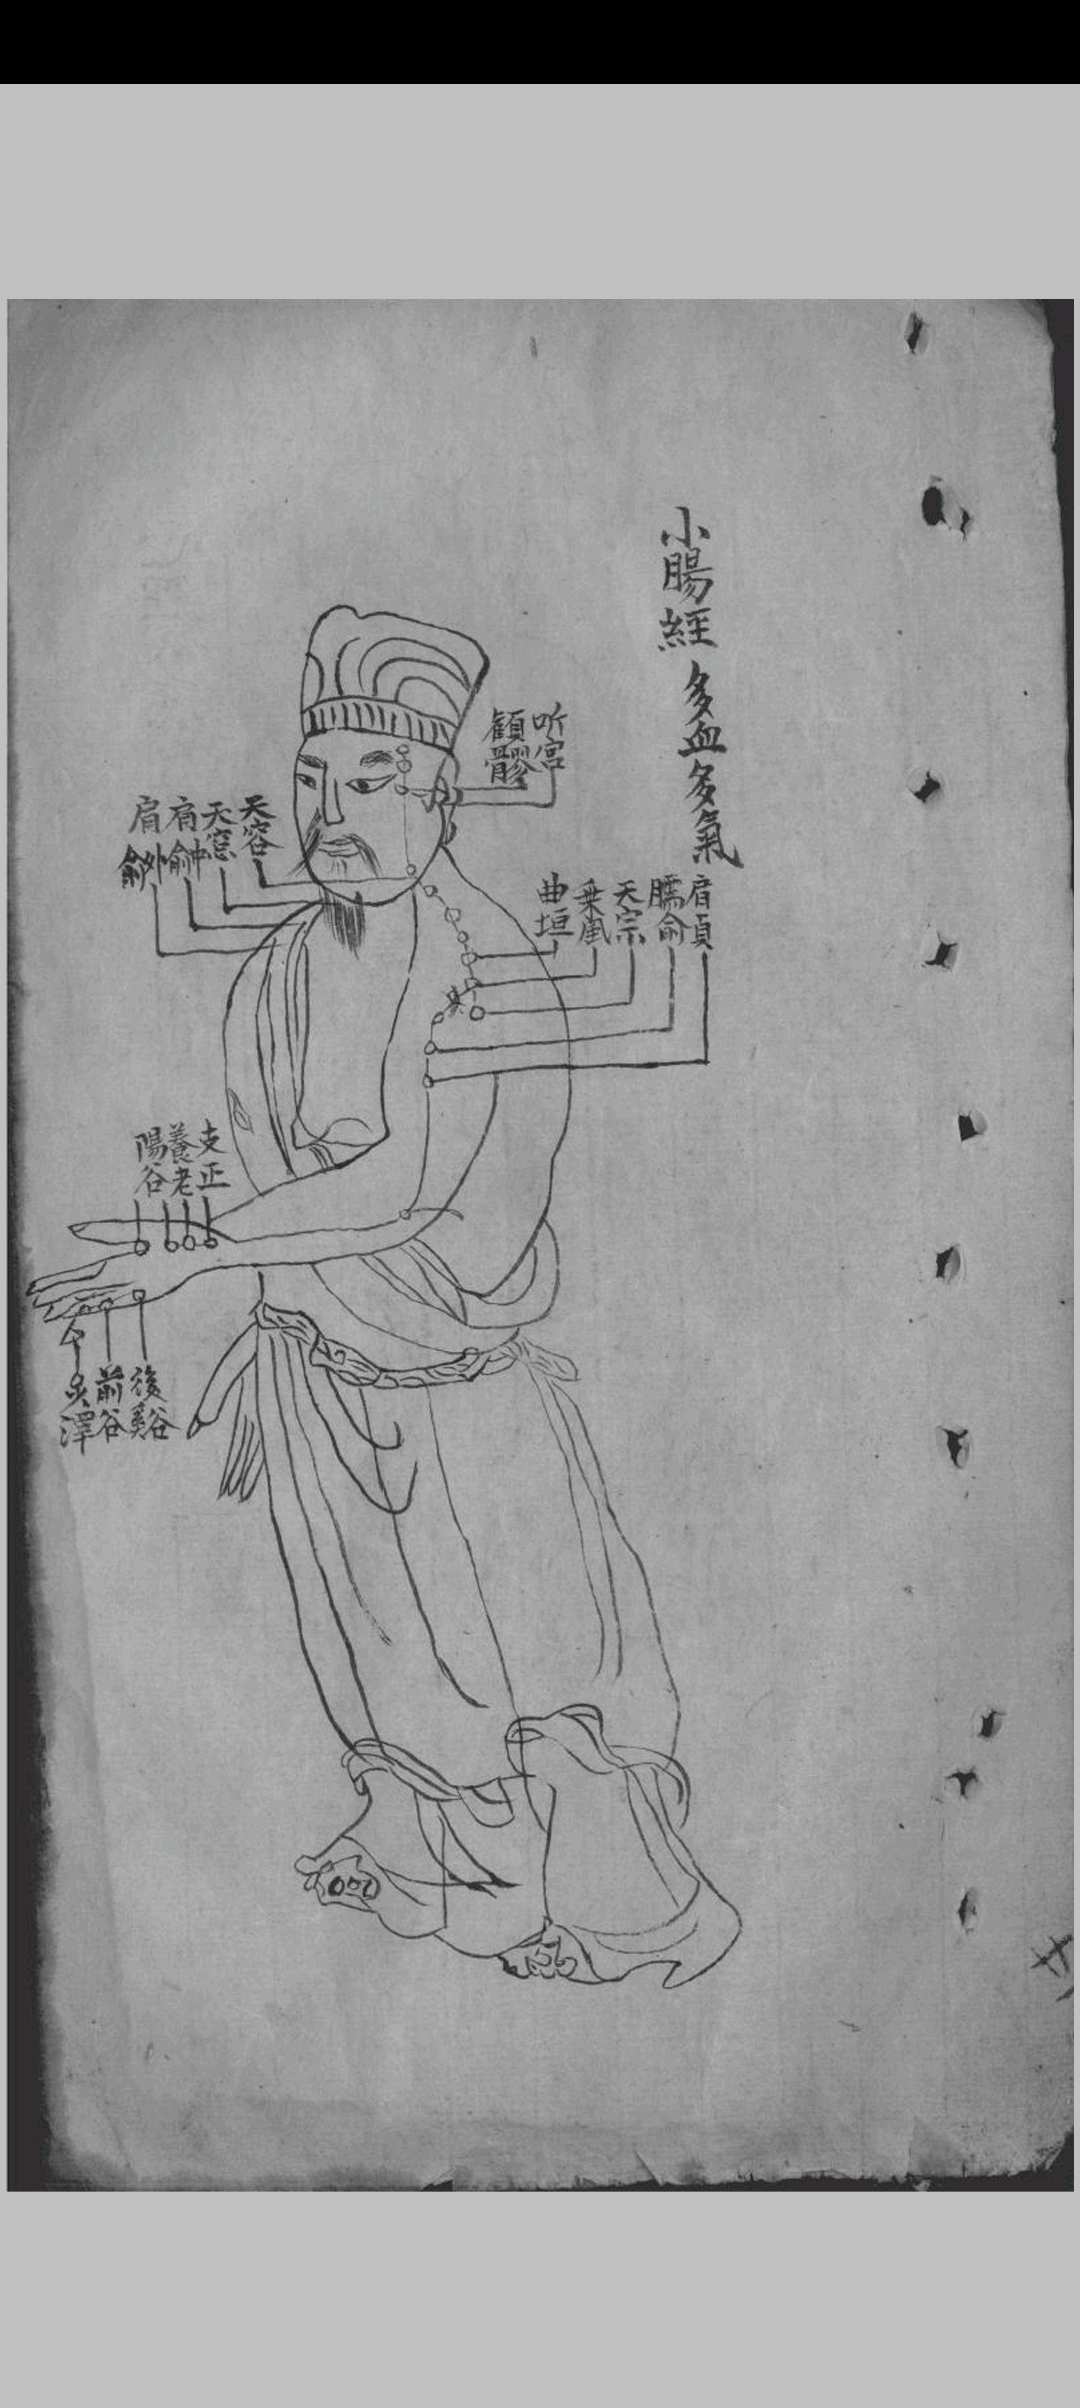 小腸經 多血多氣
听宮
顴髎
肩貞
臑俞
天宗
秉風
曲垣
天容
天窓
肩中俞
肩外俞
支正
養老
陽谷
後谿谷
前谷
少澤